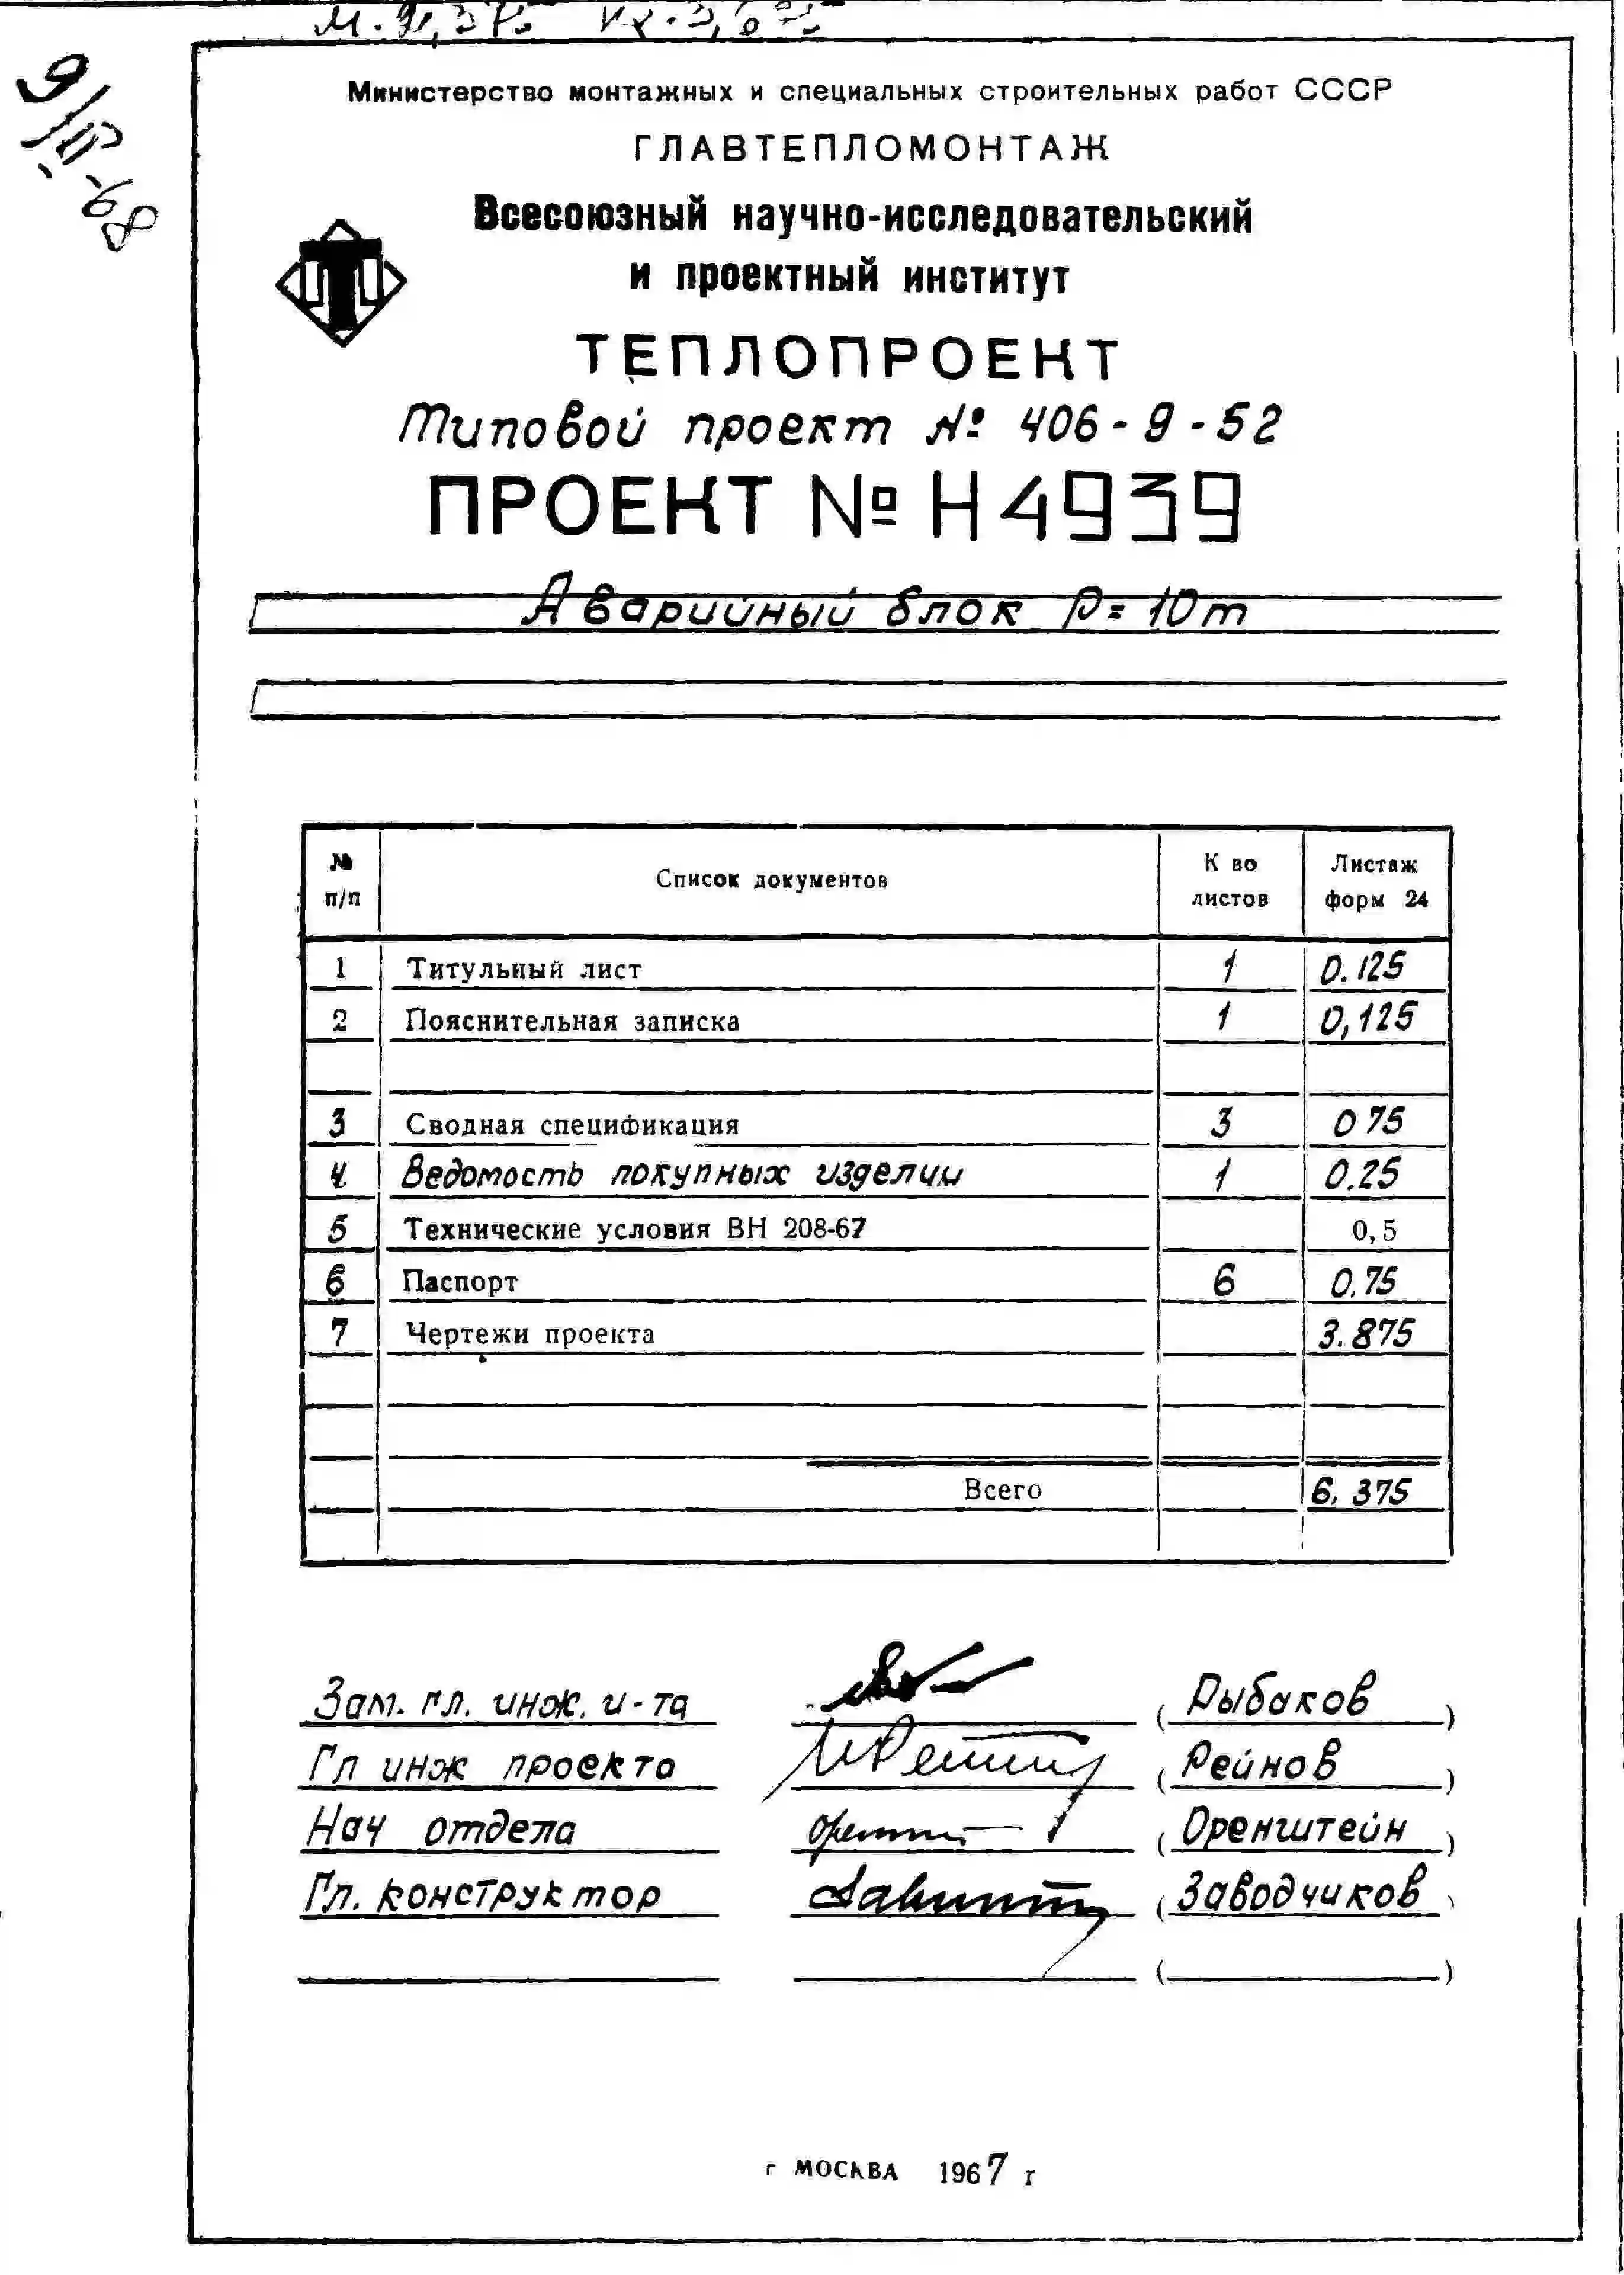 9/II-68
Министерство монтажных и специальных строительных работ СССР
ГЛАВТЕПЛОМОНТАЖ
Всесоюзный научно-исследовательский
и проектный институт
ТЕПЛОПРОЕКТ
Типовой проект № 406-9-52
ПРОЕКТ № Н4939
Аварийный блок Р=10т
№ п/п Список документов К во листов Листаж форм 24
1 Титульный лист 1 0.125
2 Пояснительная записка 1 0,125
3 Сводная спецификация 3 0 75
4 Ведомость покупных изделии 1 0.25
5 Технические условия ВН 208-67 0,5
6 Паспорт 6 0.75
7 Чертежи проекта 3.875
Всего 6.375
Зам. гл. инж. и-та (Рыбаков)
Гл инж проекта (Рейнов)
Нач отдела (Оренштейн)
Гл. конструктор (Заводчиков)
г МОСКВА 1967 г